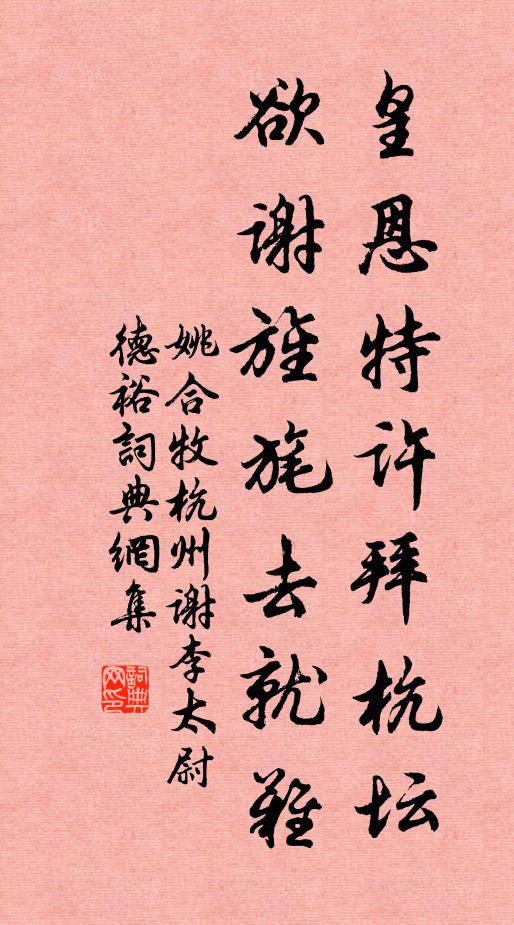 皇恩特许拜杭坛
欲谢旌旄去就難
姚合牧杭州谢李太尉
德裕詞典網集
詞典网印